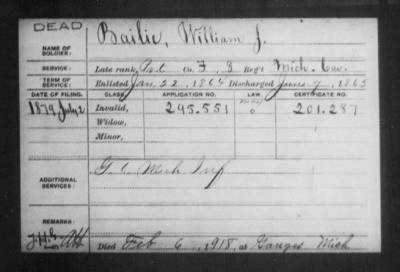 DEAD
NAME OF SOLDIER: Bailie, William J.
SERVICE: Late rank, Pvt Co. F, 8 Reg't Mich. Cav.
TERM OF SERVICE: Enlisted Jan. 22, 1864 Discharged June 7, 1865
DATE OF FILING. CLASS. APPLICATION NO. LAW. CERTIFICATE NO.
1879 July 2 Invalid, 295.551 201.287
Widow,
Minor,
ADDITIONAL SERVICES: G. 6. Mich Inf
REMARKS:
Died Feb 6, 1918, at Ganges Mich